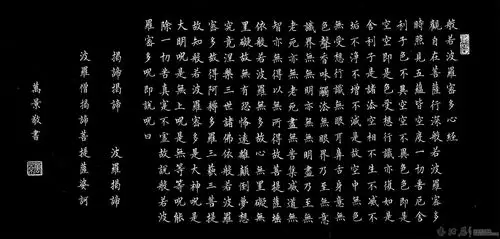 般若波羅蜜多心經
觀自在菩薩行深般若波羅蜜多
時照見五蘊皆空度一切苦厄舍
利子色不異空空不異色色即是
空空即是色受想行識亦復如是
舍利子是諸法空相不生不滅不
垢不淨不增不減是故空中無色
無受想行識無眼耳鼻舌身意無
色聲香味觸法無眼界乃至無意
識界無無明亦無無明盡乃至無
老死亦無老死盡無苦集滅道無
智亦無得以無所得故菩提薩埵
依般若波羅蜜多故心無罣礙無
罣礙故無有恐怖遠離顛倒夢想
究竟涅槃三世諸佛依般若波羅
蜜多故得阿耨多羅三藐三菩提
故知般若波羅蜜多是大神咒是
大明咒是無上咒是無等等咒能
除一切苦真實不虛故說般若波
羅蜜多咒即說咒曰
揭諦揭諦 波羅揭諦
波羅僧揭諦菩提薩婆訶
萬景敬書